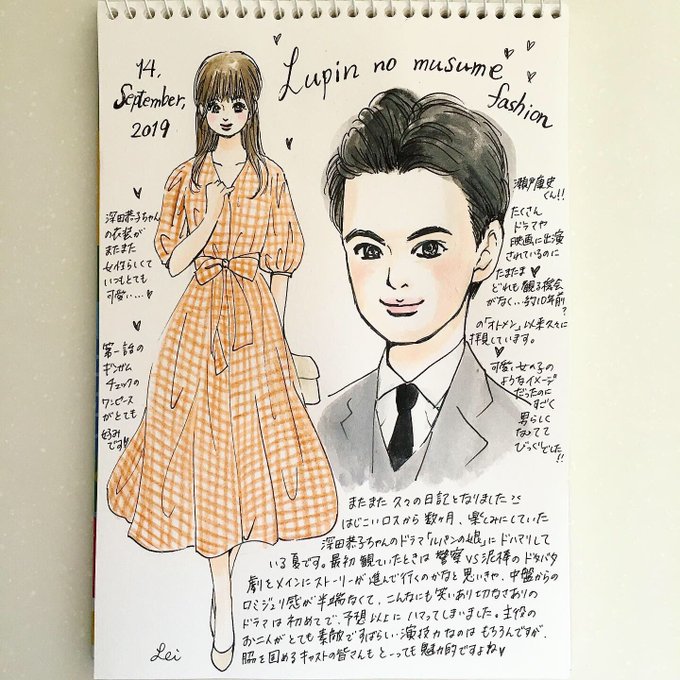 14,
September,
2019
Lupin no musume
fashion
深田恭子ちゃん
の衣装が
またまた
女性らしくて
いつもとても
可愛い…♥
第一話の
ギンガム
チェックの
ワンピース
がとても
好み
です!!
瀬戸康史
くん!!
たくさん
ドラマや
映画に出演
されているのに
たまたま♥
どれも観る機会
がなく…約10年前?
の「オトメン」以来久々に
拝見しています。
可愛い女の子の
ようなイメージ
だったのに
すごく
男らしく
なってて
びっくりでした!!
またまた久々の日記となりました
はじこいロスから数ヶ月、楽しみにしていた
深田恭子ちゃんのドラマ「ルパンの娘」にドハマリして
いる夏です。最初観ていたときは警察VS泥棒のドタバタ
劇をメインにストーリーが進んで行くのかなと思いきや、中盤からの
ロミジュリ感が半端なくて、こんなにも笑いあり切なさありの
ドラマは初めてで、予想以上にハマってしまいました。主役の
お二人がとても素敵ですばらしい演技力なのはもちろんですが、
脇を固めるキャストの皆さんもとーっても魅力的ですよね♥
Lei